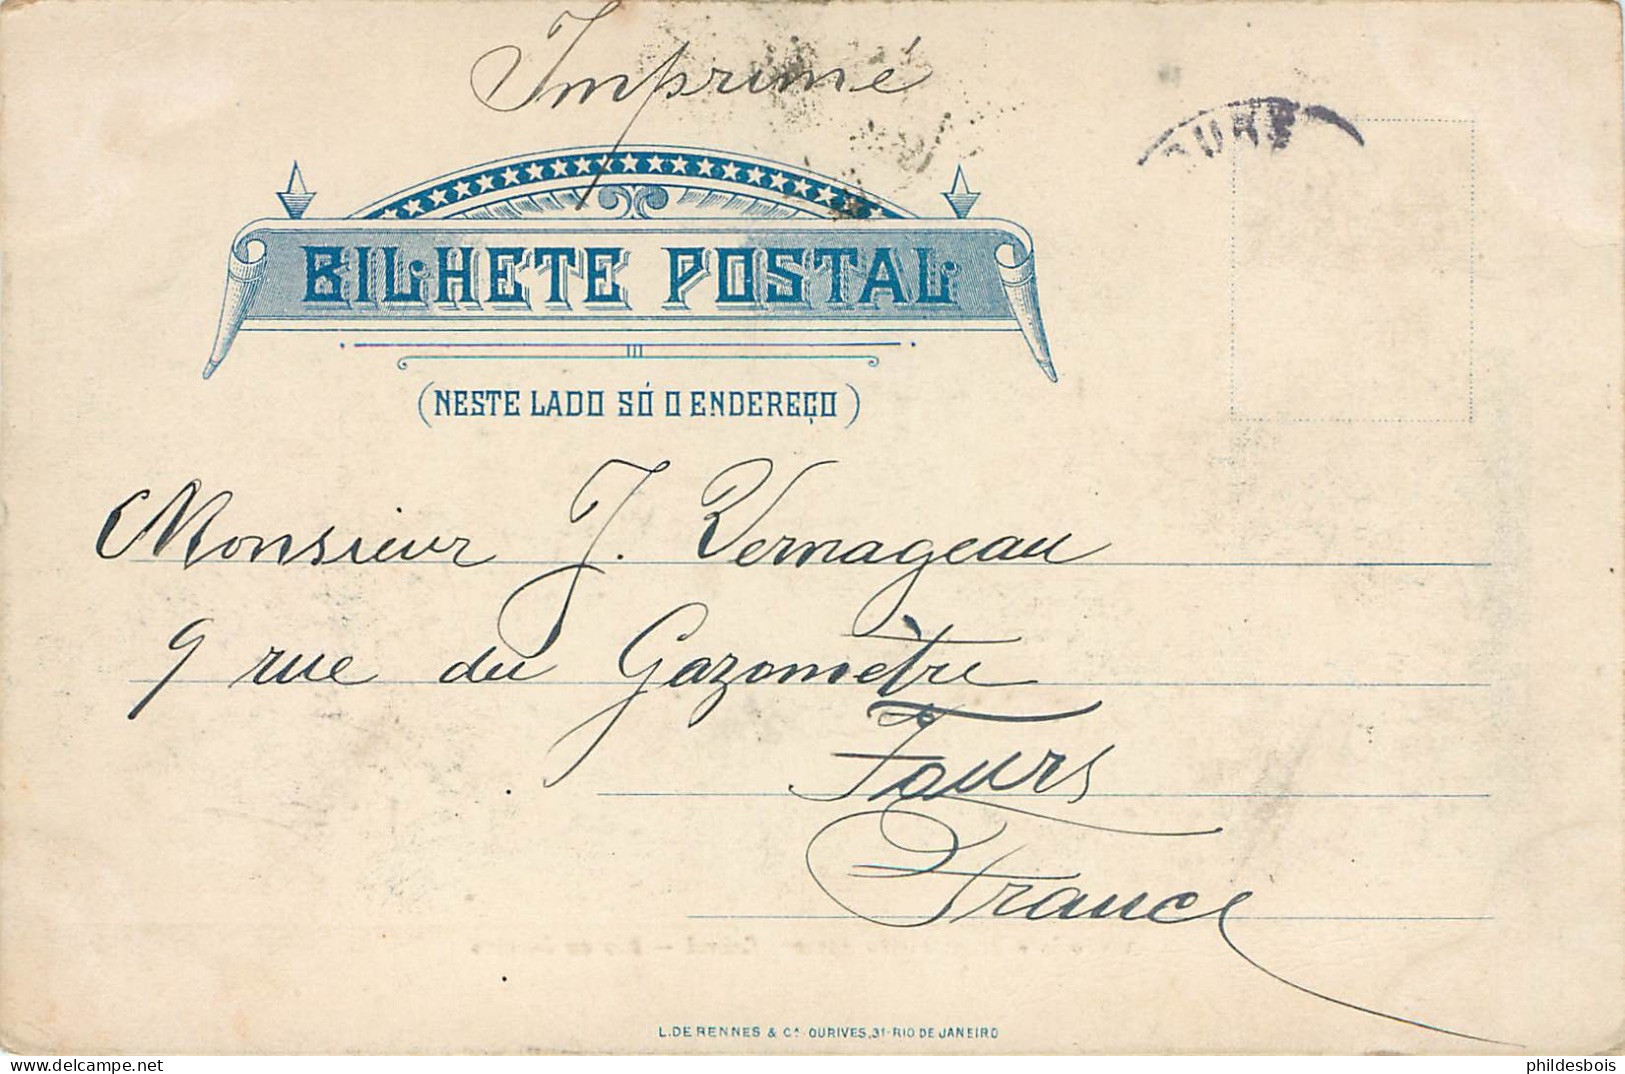 Imprimé
BILHETE POSTAL
(NESTE LADO SÓ O ENDEREÇO)
Monsieur J. Vernageau
9 rue du Gazomètre
Tours
France
L. DE RENNES & Cª OURIVES, 31-RIO DE JANEIRO
phildesbois